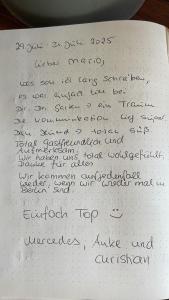 29. Juli - 31. Juli 2025
Lieber Mario,
was soll ich lang schreiben,
es war einfach toll bei
Dir. Dein Garten → ein Traum
Die Kommunikation lief super
Dein Hund → total süß
Total Gastfreundlich und
Aufmerksam.
Wir haben uns total wohlgefühlt.
Danke für alles
Wir kommen auf jedenfall
wieder, wenn wir wieder mal in
Berlin sind.
Einfach Top ☺
Mercedes, Anke und